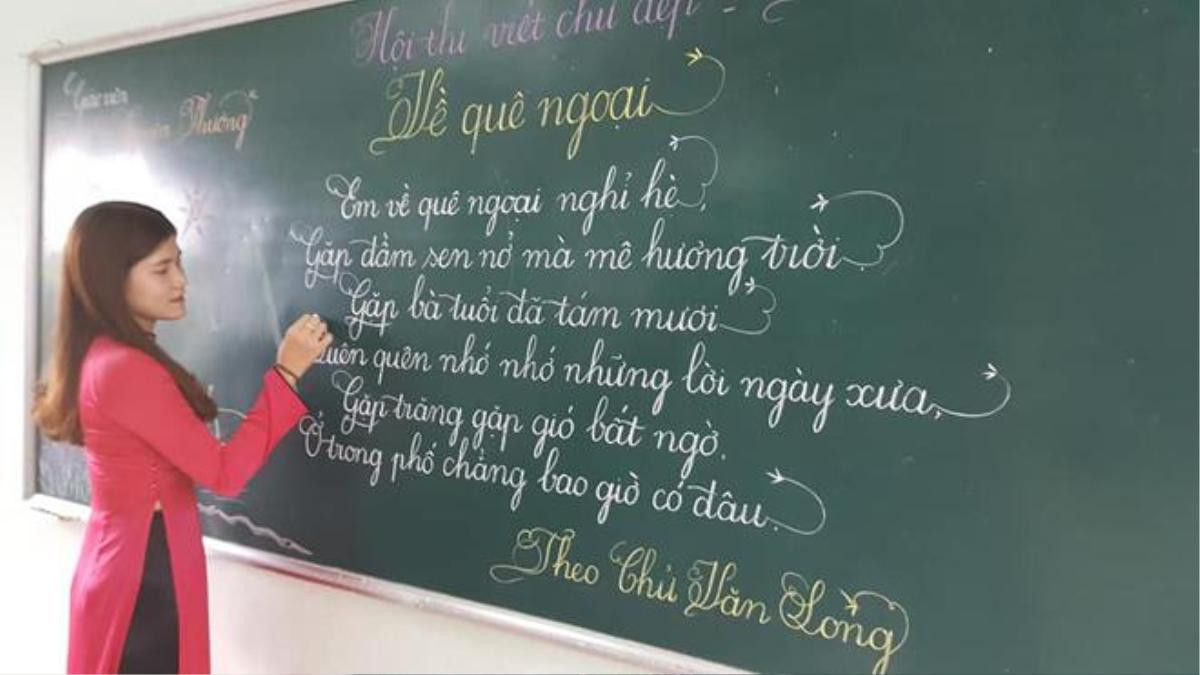 Hội thi viết chữ đẹp -
Giáo viên
Thương
Về quê ngoại
Em về quê ngoại nghỉ hè,
Gặp đầm sen nở mà mê hương trời.
Gặp bà tuổi đã tám mươi
Quên quên nhớ nhớ những lời ngày xưa.
Gặp trăng gặp gió bất ngờ.
Ở trong phố chẳng bao giờ có đâu.
Theo Chử Văn Long